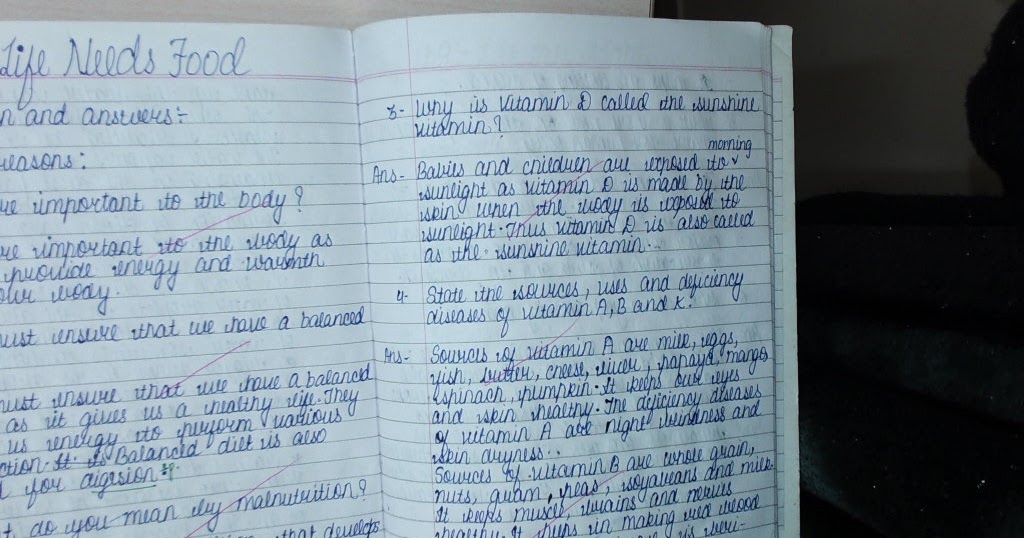 Life Needs Food
and answers:-
reasons:
important to the body?
important to the body as
provide energy and warmth
our body.
must ensure that we have a balanced
must ensure that we have a balanced
as it gives us a healthy life. They
us energy to perform various
Balanced diet is also
for digestion
do you mean by malnutrition?
that develops
3- Why is Vitamin D called the sunshine
vitamin?
morning
Ans- Babies and children are exposed to
sunlight as vitamin D is made by the
skin when the body is exposed to
sunlight. Thus vitamin D is also called
as the sunshine vitamin..
4- State the sources, uses and deficiency
diseases of vitamin A, B and K.
Ans- Sources of vitamin A are milk, eggs,
fish, butter, cheese, liver, papaya, mango
spinach, pumpkin. It keeps our eyes
and skin healthy. The deficiency diseases
of vitamin A are night blindness and
skin dryness..
Sources of vitamin B are whole grain,
nuts, peas, soyabeans and milk.
It keeps muscle, brains and nerves
healthy. It helps in making red blood
is beri-